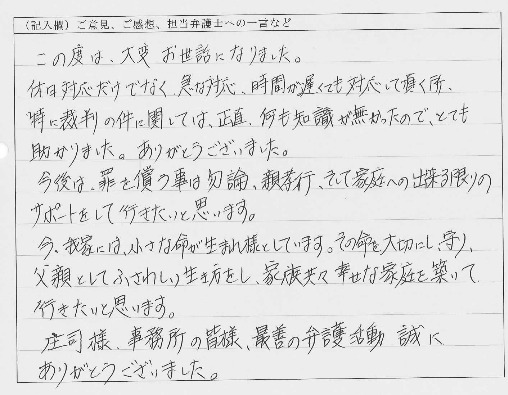 （記入欄）ご意見、ご感想、担当弁護士への一言など
この度は、大変 お世話になりました。
休日対応だけでなく 急な対応、時間が遅くても対応して頂く所、
特に裁判の件に関しては、正直、何も知識が無かったので、とても
助かりました。ありがとうございました。
今後は、罪を償う事は勿論、親孝行、そして家庭への出来る限りの
サポートをして行きたいと思います。
今、我家には、小さな命が生まれ様としています。その命を大切にし、守り、
父親としてふさわしい生き方をし、家族共々幸せな家庭を築いて
行きたいと思います。
庄司様、事務所の皆様、最善の弁護活動 誠に
ありがとうございました。